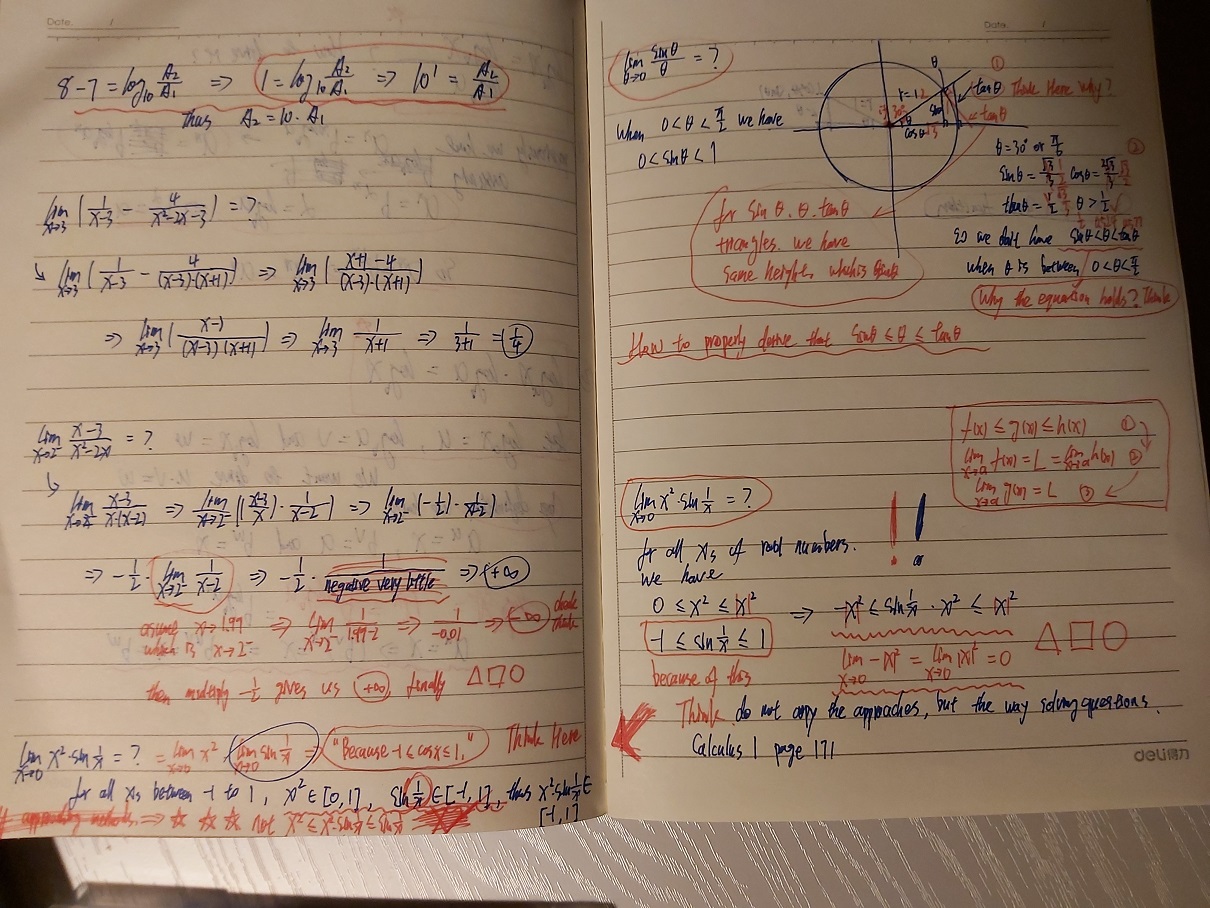 Date. /
8-7 = log₁₀ A₂/A₁ ⇒ 1 = log₁₀ A₂/A₁ ⇒ 10¹ = A₂/A₁
thus A₂ = 10 · A₁
lim x→3 (1/(x-3) - 4/(x²-2x-3)) = ?
↳ lim x→3 (1/(x-3) - 4/((x-3)·(x+1))) ⇒ lim x→3 ((x+1-4)/((x-3)·(x+1)))
⇒ lim x→3 ((x-3)/((x-3)(x+1))) ⇒ lim x→3 1/(x+1) ⇒ 1/(3+1) = 1/4
lim x→2⁻ (x-3)/(x²-2x) = ?
↳ lim x→2⁻ (x-3)/(x·(x-2)) ⇒ lim x→2⁻ ((x-3)/x · 1/(x-2)) ⇒ lim x→2⁻ (-1/2) · 1/(x-2)
⇒ -1/2 · lim x→2⁻ 1/(x-2) ⇒ -1/2 · 1/negative very little ⇒ +∞
assume x→1.99 ⇒ lim x→2⁻ 1/(1.99-2) ⇒ 1/-0.01 ⇒ -∞
which is x→2⁻
then multiply -1/2 gives us +∞, finally △□○
lim x→0 x²·sin 1/x = ? = lim x→0 x² · lim x→0 sin 1/x = "Because -1 ≤ cosx ≤ 1," Think Here
for all xs between -1 to 1, x² ∈ [0,1], sin 1/x ∈ [-1,1], thus x²·sin 1/x ∈
[-1,1]
Date. /
lim θ→0 sinθ/θ = ?
θ
①
r=1
tanθ Think Here why?
tanθ
cosθ
When 0<θ<π/2 we have
0<sinθ<1
θ=30° or π/6
②
for sin θ. θ. tanθ
triangles. we have
same heights which is
so we don't have sinθ<θ<tanθ
when θ is between 0<θ<π/2
Why the equation holds? Think
How to properly derive that sinθ ≤ θ ≤ tanθ
f(x) ≤ g(x) ≤ h(x) ①
lim x→a f(x) = L = lim x→a h(x) ②
lim x→a g(x) = L ③
lim x→0 x²·sin 1/x = ?
for all xs of real numbers.
we have
0 ≤ x² ≤ |x|² ⇒ -|x|² ≤ sin 1/x · x² ≤ |x|²
-1 ≤ sin 1/x ≤ 1
△□○
because of this
lim x→0 -|x|² = lim x→0 |x|² = 0
Think do not copy the approaches, but the way solving questions.
Calculus 1 page 171
deli得力